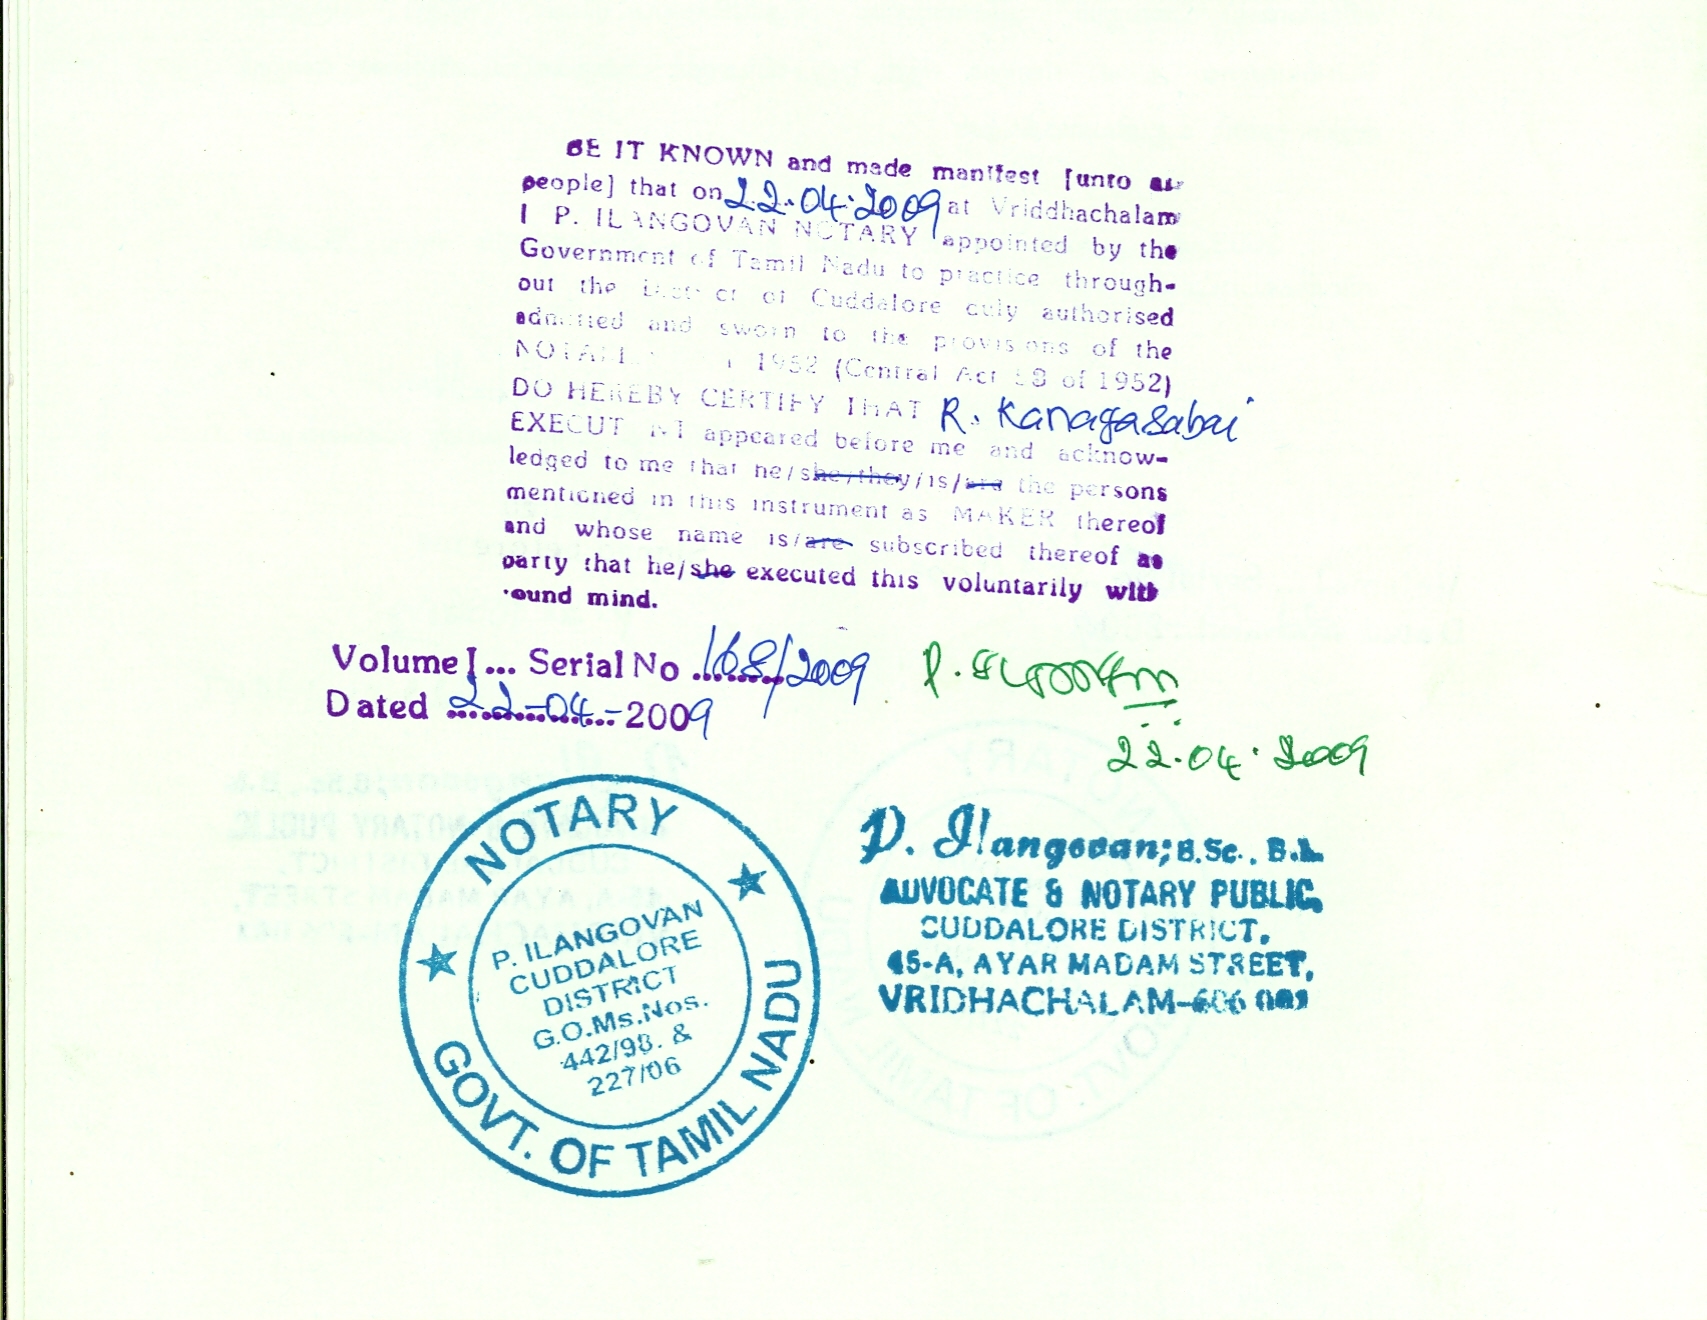 BE IT KNOWN and made manifest [unto
people] that on 22.04.2009 at Vriddhachalam
I P. ILANGOVAN NOTARY appointed by the
Government of Tamil Nadu to practice through-
out the District of Cuddalore duly authorised
admitted and sworn to the provisions of the
1952 (Central Act 53 of 1952)
DO HEREBY CERTIFY THAT R. Kanagasabai
EXECUTANT appeared before me and acknow-
ledged to me that he/she/they/is/are the persons
mentioned in this instrument as MAKER thereof
and whose name is/are subscribed thereof as
party that he/she executed this voluntarily with
sound mind.
Volume I... Serial No 168/2009
Dated 22-04-2009
22.04.2009
NOTARY
GOVT. OF TAMIL NADU
P. ILANGOVAN
CUDDALORE
DISTRICT
G.O.Ms.Nos.
442/98. &
227/06
P. Ilangovan; B.Sc., B.L.
ADVOCATE & NOTARY PUBLIC,
CUDDALORE DISTRICT,
45-A, AYAR MADAM STREET,
VRIDHACHALAM-606 001